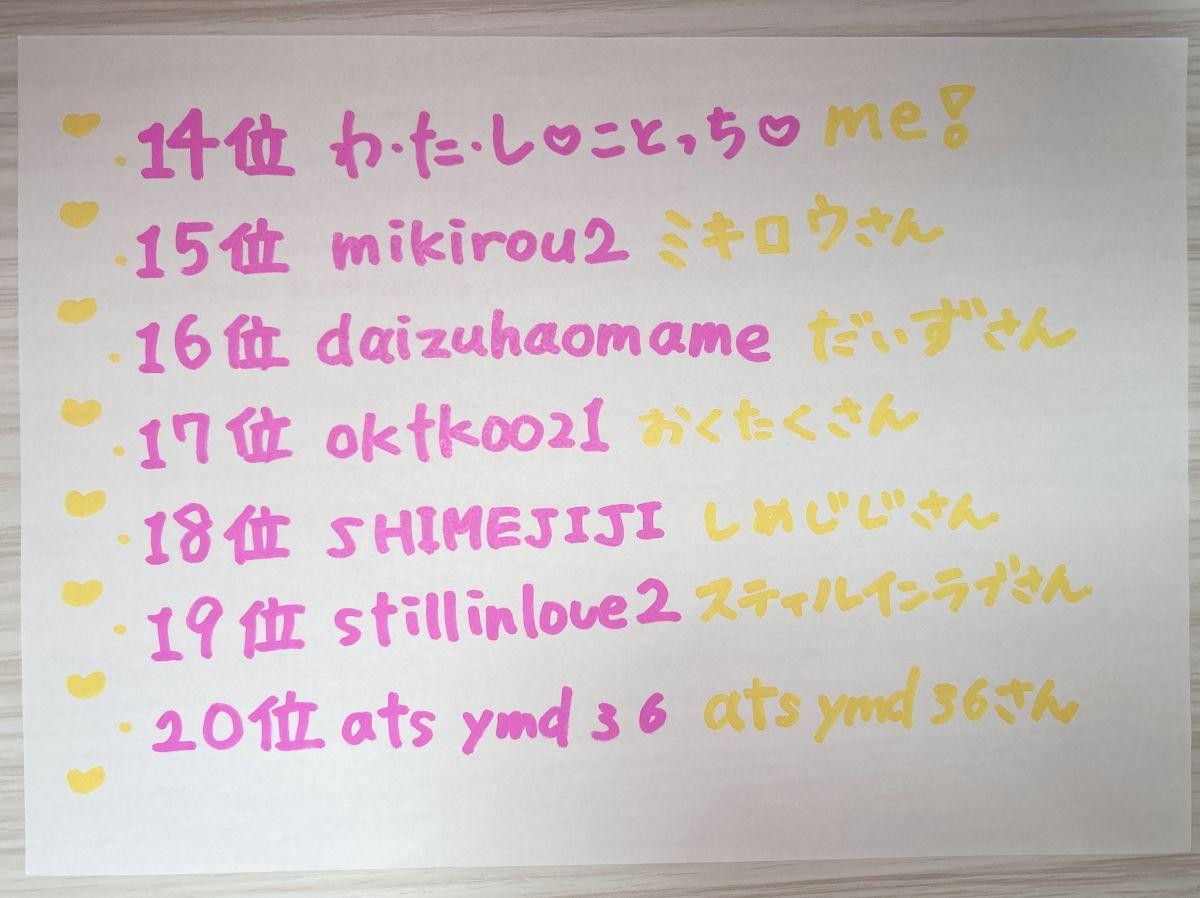 14位 わ・た・し♡ことっち♡ me!
15位 mikirou2 ミキロウさん
16位 daizuhaomame だいずさん
17位 oktk0021 おくたくさん
18位 SHIMEJIJI しめじじさん
19位 stillinlove2 スティルインラブさん
20位 ats ymd 36 ats ymd 36さん